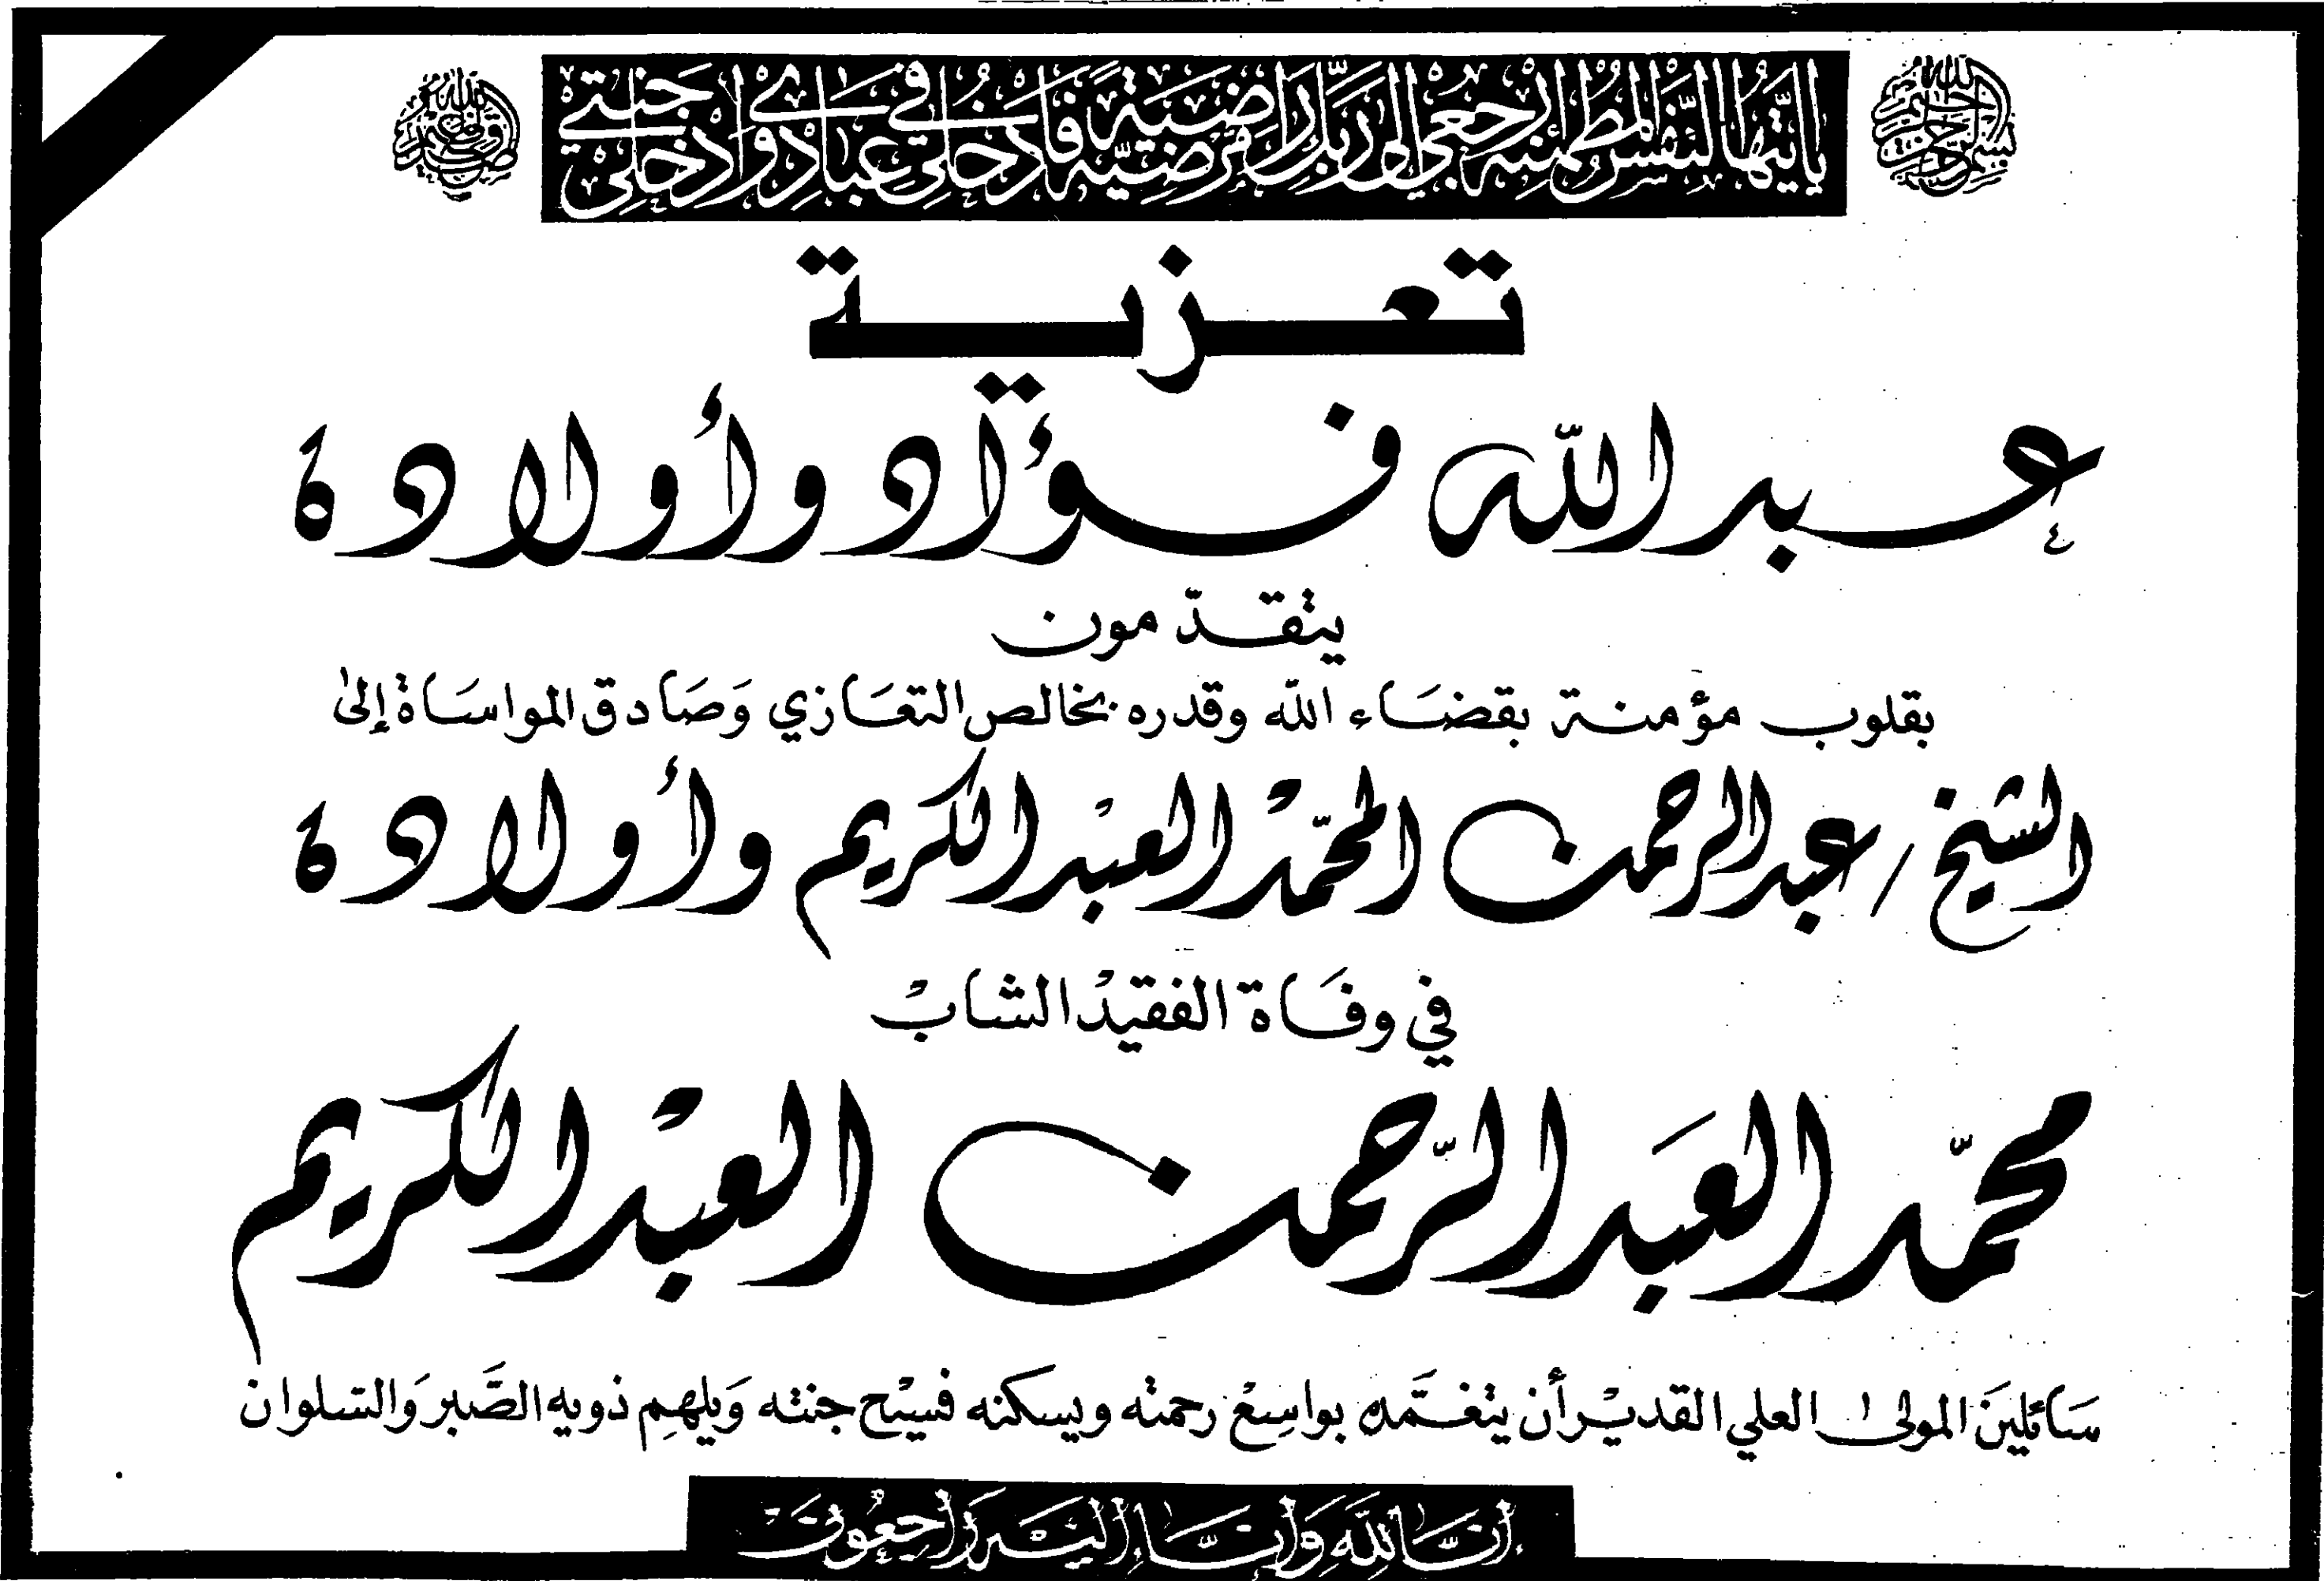 بسم الله الرحمن الرحيم
يا أيتها النفس المطمئنة ارجعي إلى ربك راضية مرضية فادخلي في عبادي وادخلي جنتي
تعزية
عبد الله فؤاد وأولاده
يتقدّمون
بقلوب مؤمنة بقضَاء الله وقدره بخالص التعَازي وَصَادق المواسَاة إلى
الشيخ / عبد الرحمن المحمّد العبد الكريم وأولاده
في وفَاة الفقيد الشاب
محمّد العبَد الرّحمن العبْد الكريم
سَائلينَ المولى العلي القدير أن يتغمّده بواسِع رحمته ويسكنه فسيح جنته وَيلهِم ذويه الصَّبر وَالسّلوان
إنَّا لِلَّهِ وَإِنَّا إِلَيْهِ رَاجِعُونَ